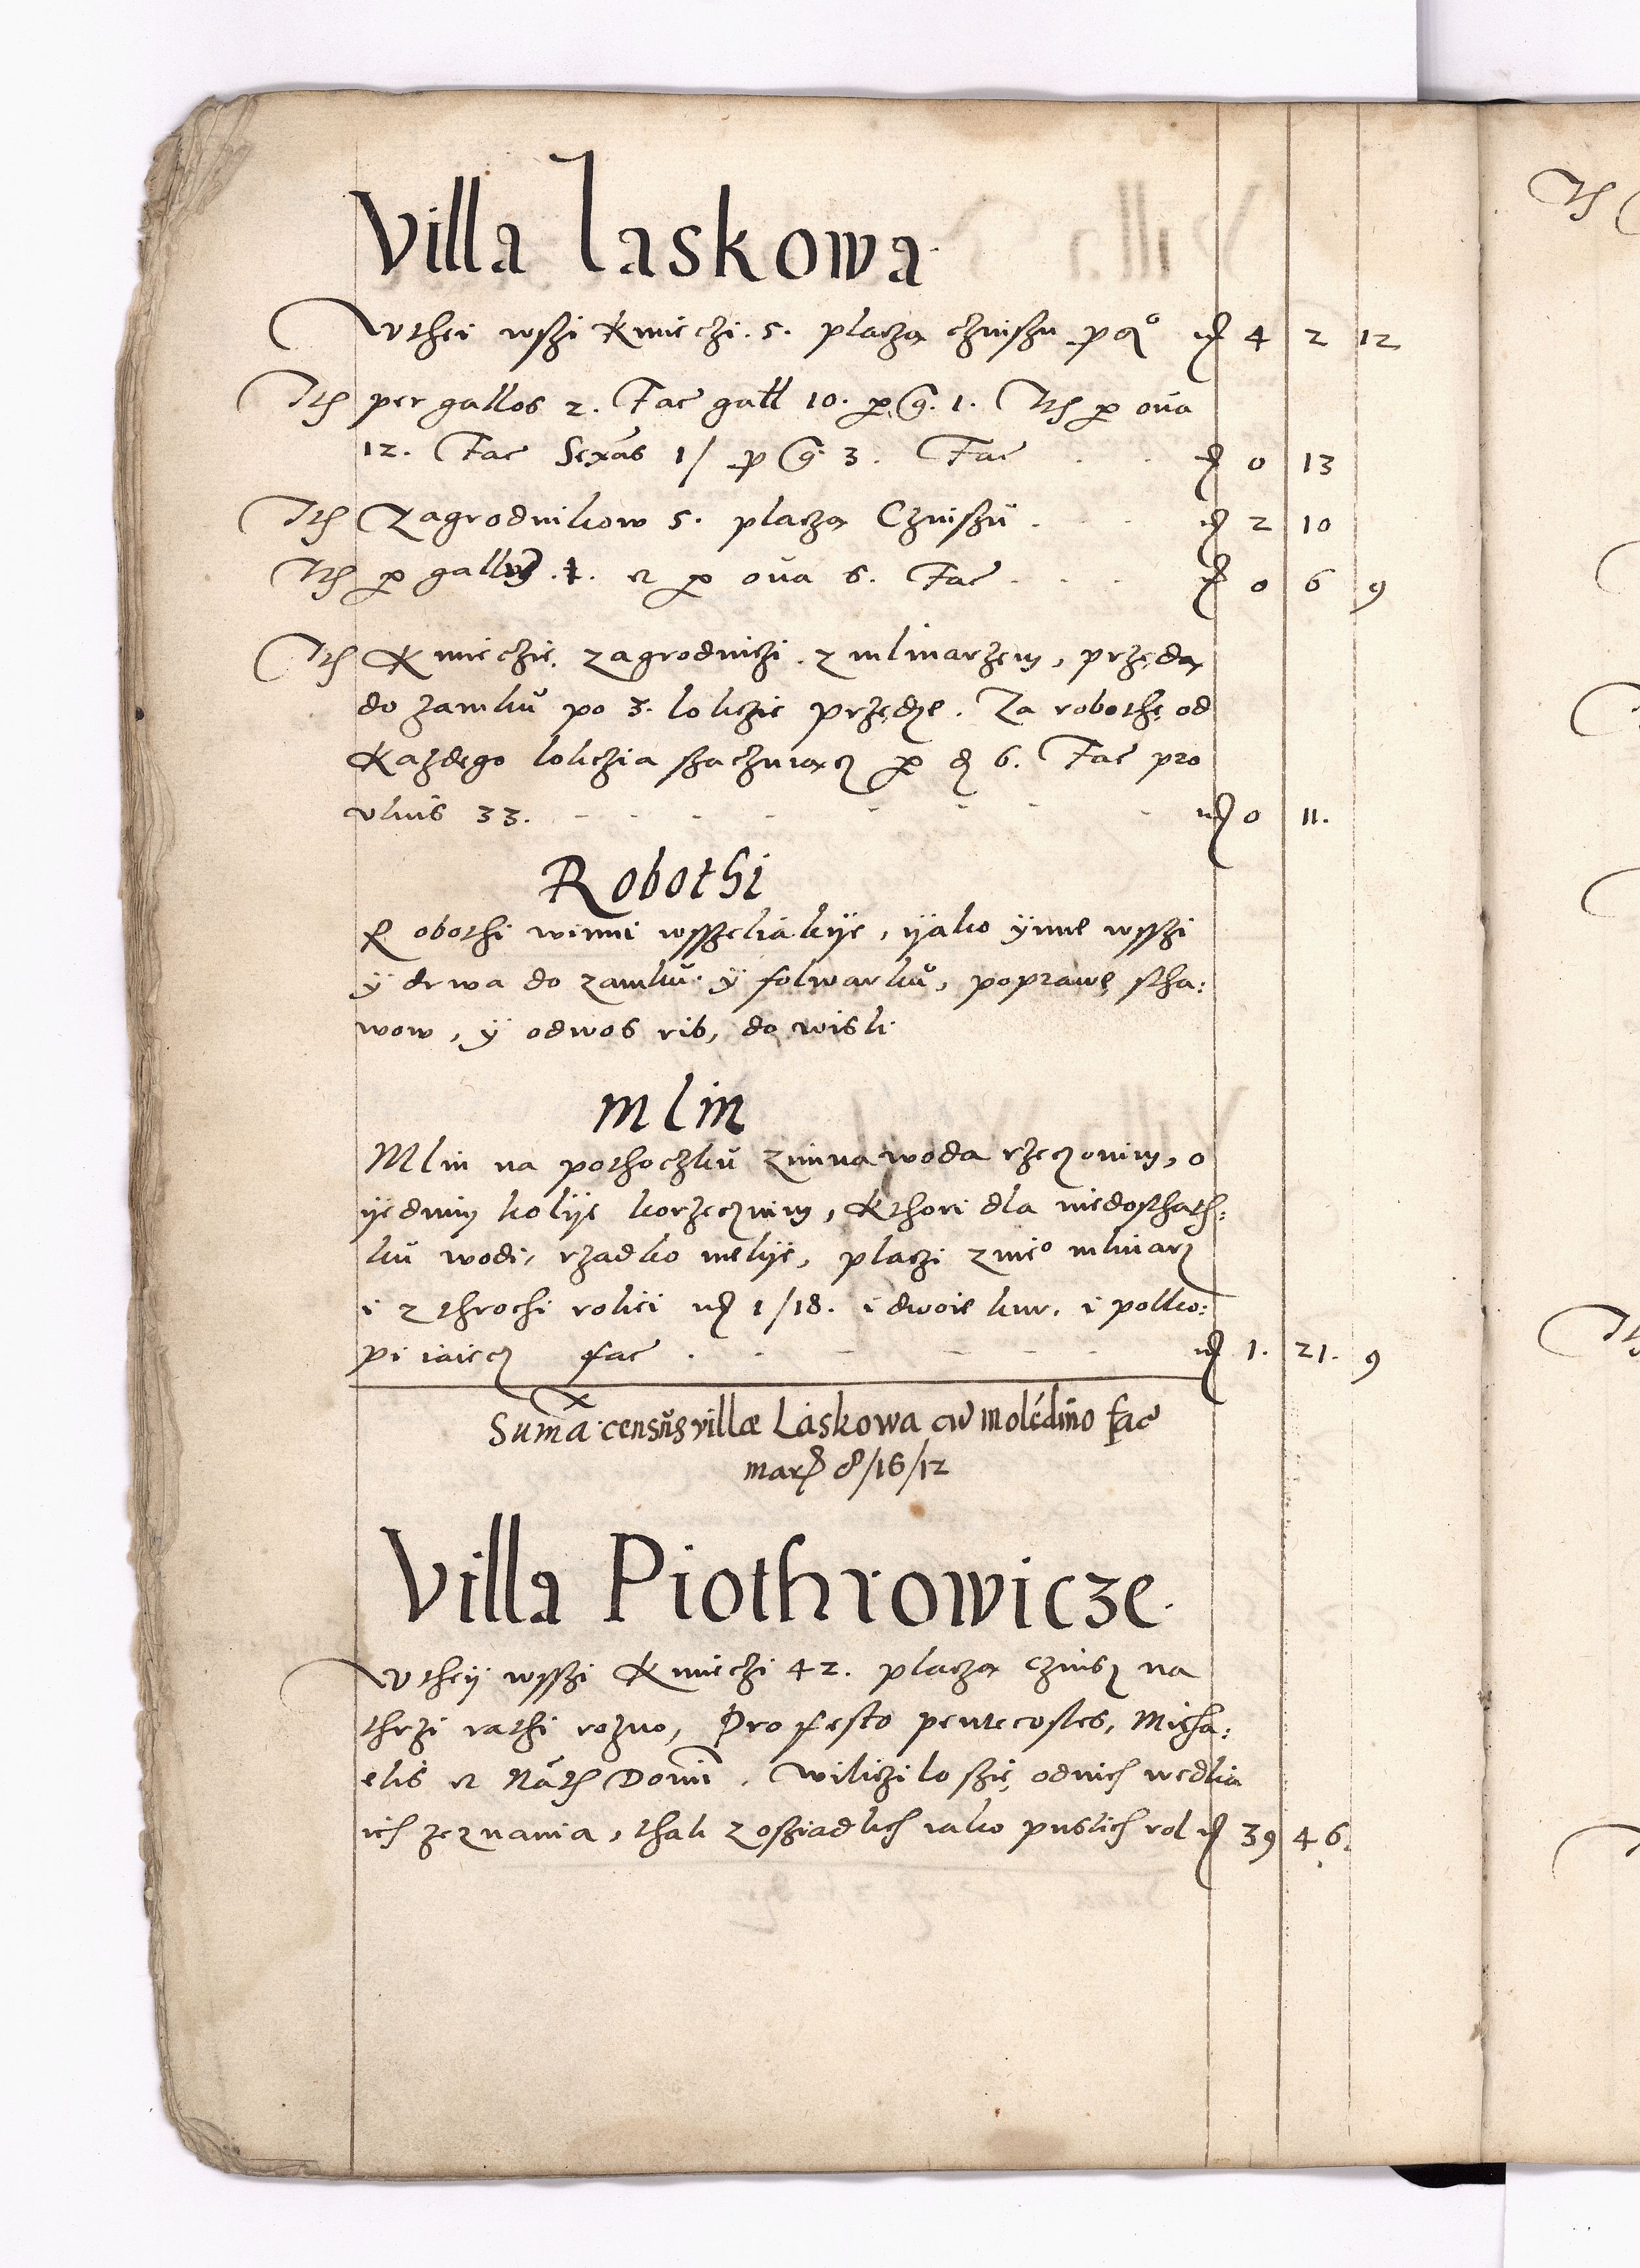 Villa Laskowa
Wthei wszi Kmieczi. 5. placzą czinszu pq° mr 4 2 12
Ith per gallos 2. Fac gall 10. p g. 1. Ith p oua
12. Fac Sexas 1/ p g 3. Fac mr 0 13
Ith Zagrodnikow 5. placzą Czinszu mr 2 10
Ith p gallum .1. et p oua 6. Fac mr 0 6 9
Ith Kmieczie, zagrodniczi z mlinarzem, przędą
do zamku po 3. lokczie przędze. Za robothę od
Każdego lokczia szaczuiącz p d 6. Fac pro
vlnis 33. mr 0 11.
Robothi
Robothi winni wsszeliakije, ijako ÿnne wsszi
ÿ drwa do zamku ÿ folwarku, poprawę stha:
wow, ÿ odwos rib, do wisli
Mlin
Mlin na pothoczku zimnawoda rzeczonim, o
ijednim kolije korzecznim, Kthori dla niedosthath:
ku wodi, rzadko melije, placzi znie° mlinarz
i z throchi rolici mr 1/18. i dwoie kur, i polko:
pi iaiecz fac mr 1. 21. 9
Suma censusvillæ Laskowa cu molédino fac
marc 8/16/12
Villa Piothrowicze.
Wtheij wsszi Kmieczi 42. placzą czinsz na
thrzi rathi rozno, Pro festo pentecostes, Micha:
elis et Nath Domi. Wiliczilo szię odnich wedlia
ich zeznania, thak z osziadlich iako pustich rol mr 39 46.